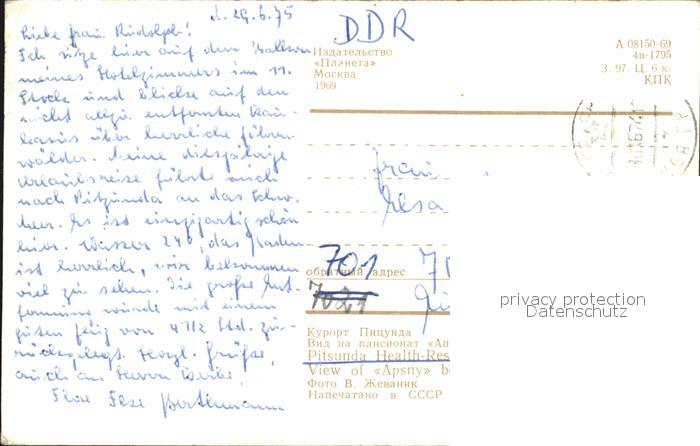 d. 29.6.75
Liebe Frau Rudolph!
Ich sitze hier auf dem Balkon
meines Hotelzimmers im 11.
Stock und blicke auf den
nicht allzu entfernten Kau-
kasus über herrliche Föhren-
wälder. Meine diesjährige
Urlaubsreise führte mich
nach Pitzunda an das Schw.
Meer. Es ist einzigartig schön
hier. Wasser 24°, das Baden
ist herrlich, wir bekommen
viel zu sehen. Die große Ent-
fernung wurde mit einem
guten Flug von 4 1/2 Std. zu-
rückgelegt. Herzl. Grüße,
auch an Herrn
Ihre
DDR
Издательство
«Планета»
Москва
1969
А 08150-69
4в-1795
З. 97. Ц. 6 к.
КПК
Frau
701
обратный адрес
7021
Курорт Пицунда
Вид на пансионат «Ап
Pitsunda Health-Res
View of «Apsny» b
Фото В. Жеваник
Напечатано в СССР
privacy protection
Datenschutz